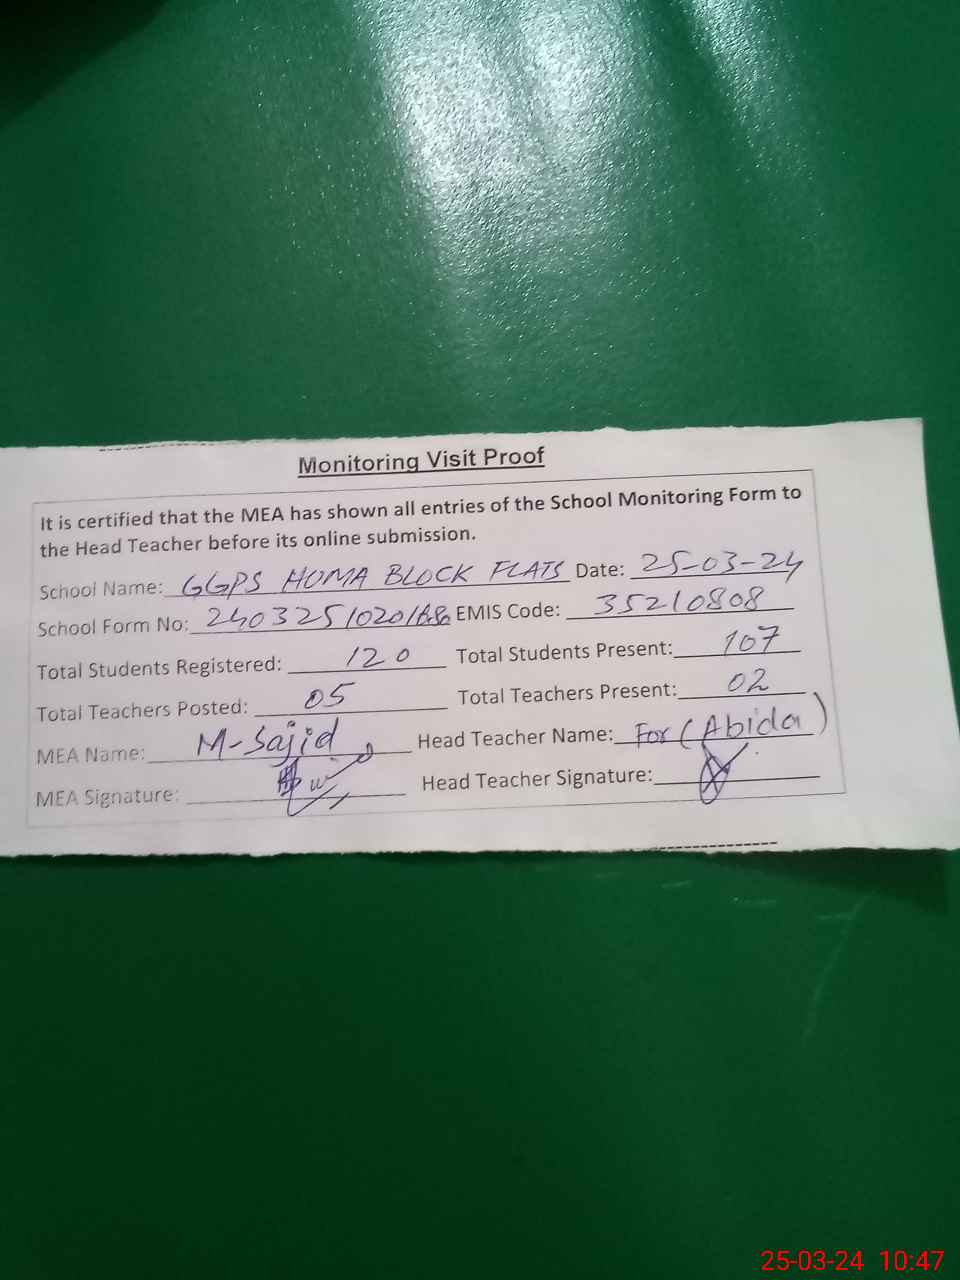 Monitoring Visit Proof
It is certified that the MEA has shown all entries of the School Monitoring Form to
the Head Teacher before its online submission.
School Name: GGPS HUMA BLOCK FLATS Date: 25-03-24
School Form No: EMIS Code: 35210808
Total Students Registered: 120 Total Students Present: 107
Total Teachers Posted: 05 Total Teachers Present: 02
MEA Name: M-Sajid Head Teacher Name: For (Abida)
MEA Signature: Head Teacher Signature:
25-03-24 10:47